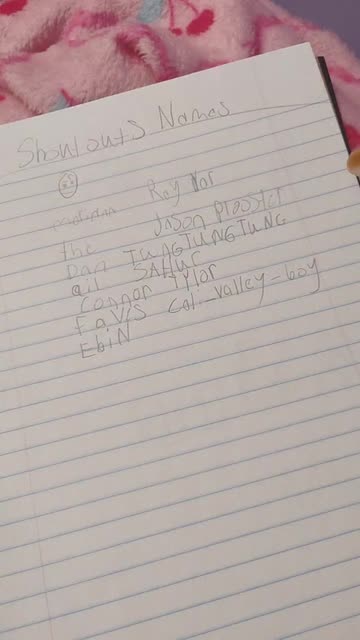 Shoutouts Names
Ray
the Jason
Dan TUNGTUNGTUNG
ail SAHUr
Connor Tylor
EnVIS Cali_valley_boy
EbiN